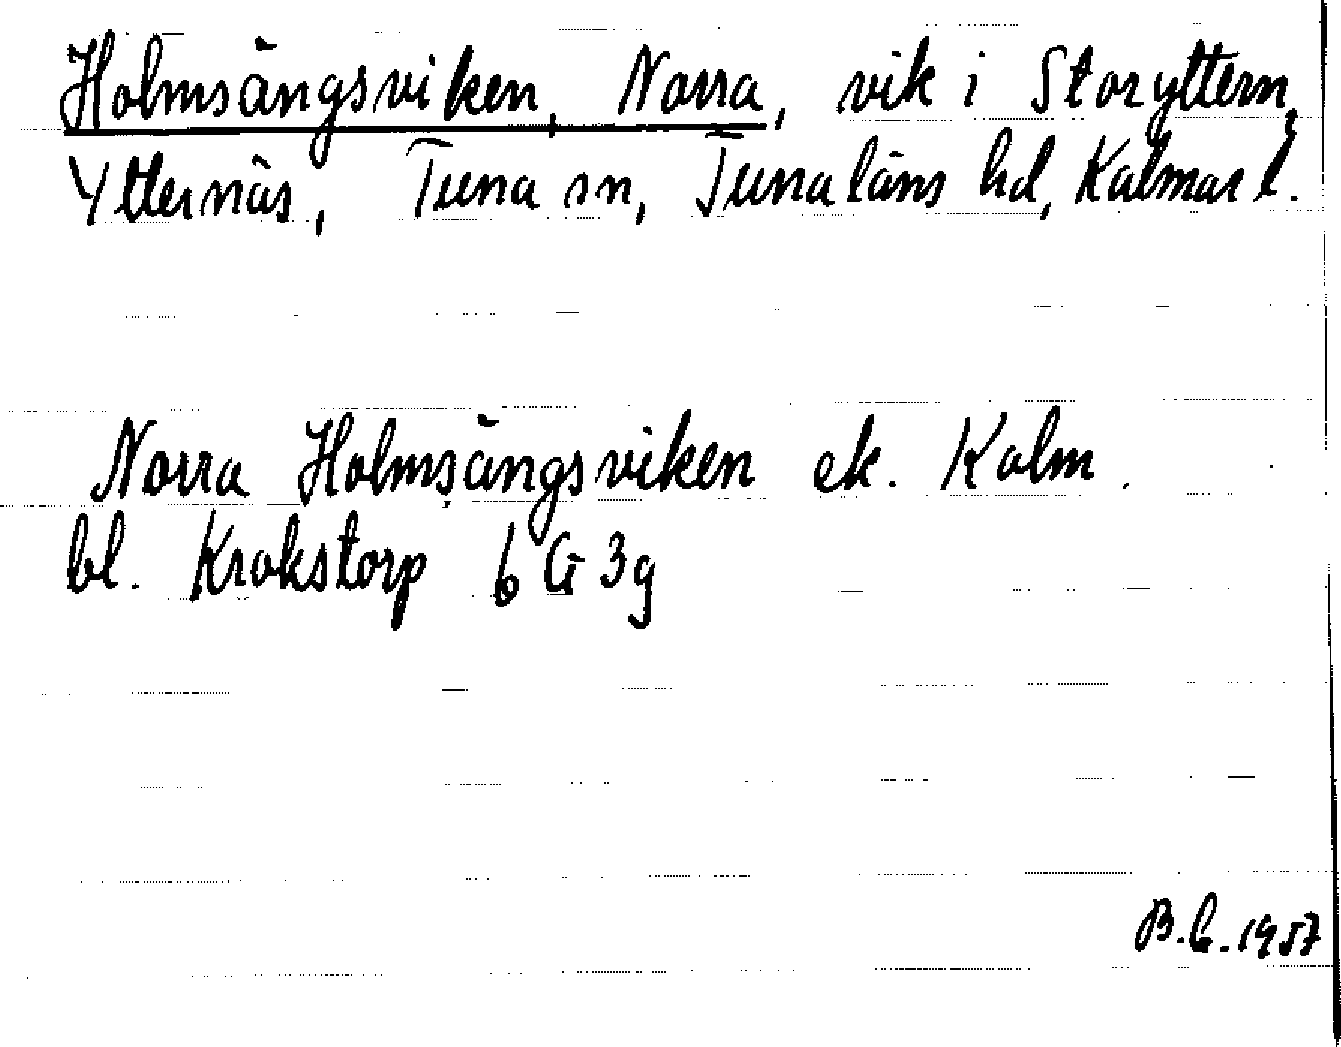 Holmsängsviken, Norra, vik i Storyttern,
Ytternäs, Tuna sn, Tunaläns hd, Kalmar l.
Norra Holmsängsviken ek. Kalm.
bl. Krokstorp 6 G 3g
B.G. 1957